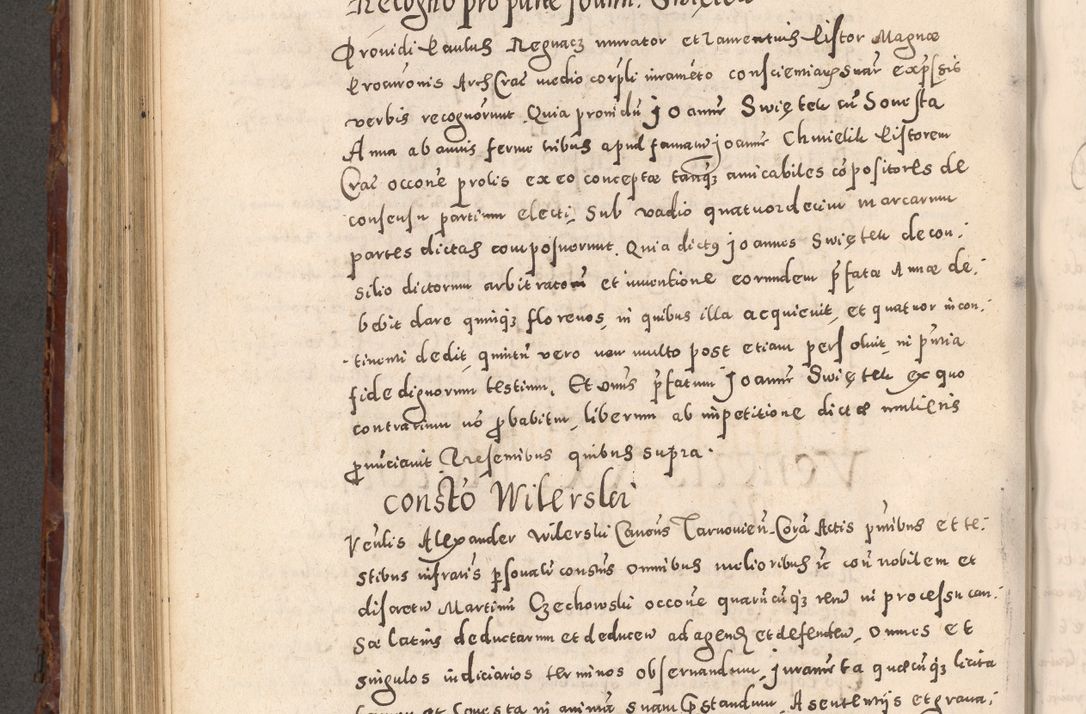 Recogno pro parte Joann: Swięten
Providi Paulus Regnacz murator et Laurentius Pistor Magnæ
Procuronis Arch Crac medio corpli iuramēto conscientiarq; suar expssis
verbis recognorunt Quia providū Joannē Swiętek cū Honesta
Anna ab annis ferme tribus apud famatū Joannē Chmielik Pistorem
Crac occone prolis ex eo conceptæ tanq; amicabiles cōpositores de
consensu partium electi, Sub vadio quatuordecim marcarum
partes dictas composuerunt. Quia dictus Joannes Swiętek de con:
silio dictorum arbitratorū et inventione eorundem pfatæ Annæ de:
bebit dare quinq; florenos, in quibus illa acquievit, et quatuor in con:
tinenti dedit, quintū vero non multo post etiam persoluit, in pntia
fide dignorum testium. Et omis pfatum Joannē Swiętek ex quo
contrarium nō probabitur, liberum ab impetitione dictæ mulieris
pnuciavit Præsentibus quibus supra.
Constō Wilerski
Venlis Alexander Wilerski Canons Tarnovien. Corā Actis pntibus et te:
stibus infratis psonalr constns omnibus melioribus ic con nobilem et
discretū Martinū Czechowski occone quarūcūq; rerū in processu cau:
sæ latius deductarum et deducen ad agend et defendēn, Omnes et
singulos iudiciarios terminos observandum, juramēta quæcūq; licita
et honesta in animā suam pstandum, A sententijs et grava: